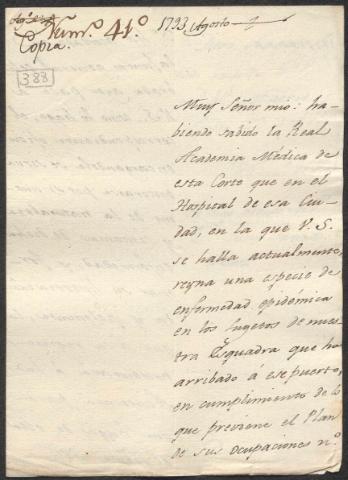 Núm.º 41.º 1793 Agosto
Copia.
388
Muy Señor mio: ha-
biendo sabido la Real
Academia Médica de
esta Corte que en el
Hospital de esa Ciu-
dad, en la que V. S.
se halla actualmente,
reyna una especie de
enfermedad epidémica
en los sugetos de nues-
tra Esquadra que ha
arribado á ese puerto,
en cumplimiento de lo
que previene el Plan
de sus ocupaciones n.º